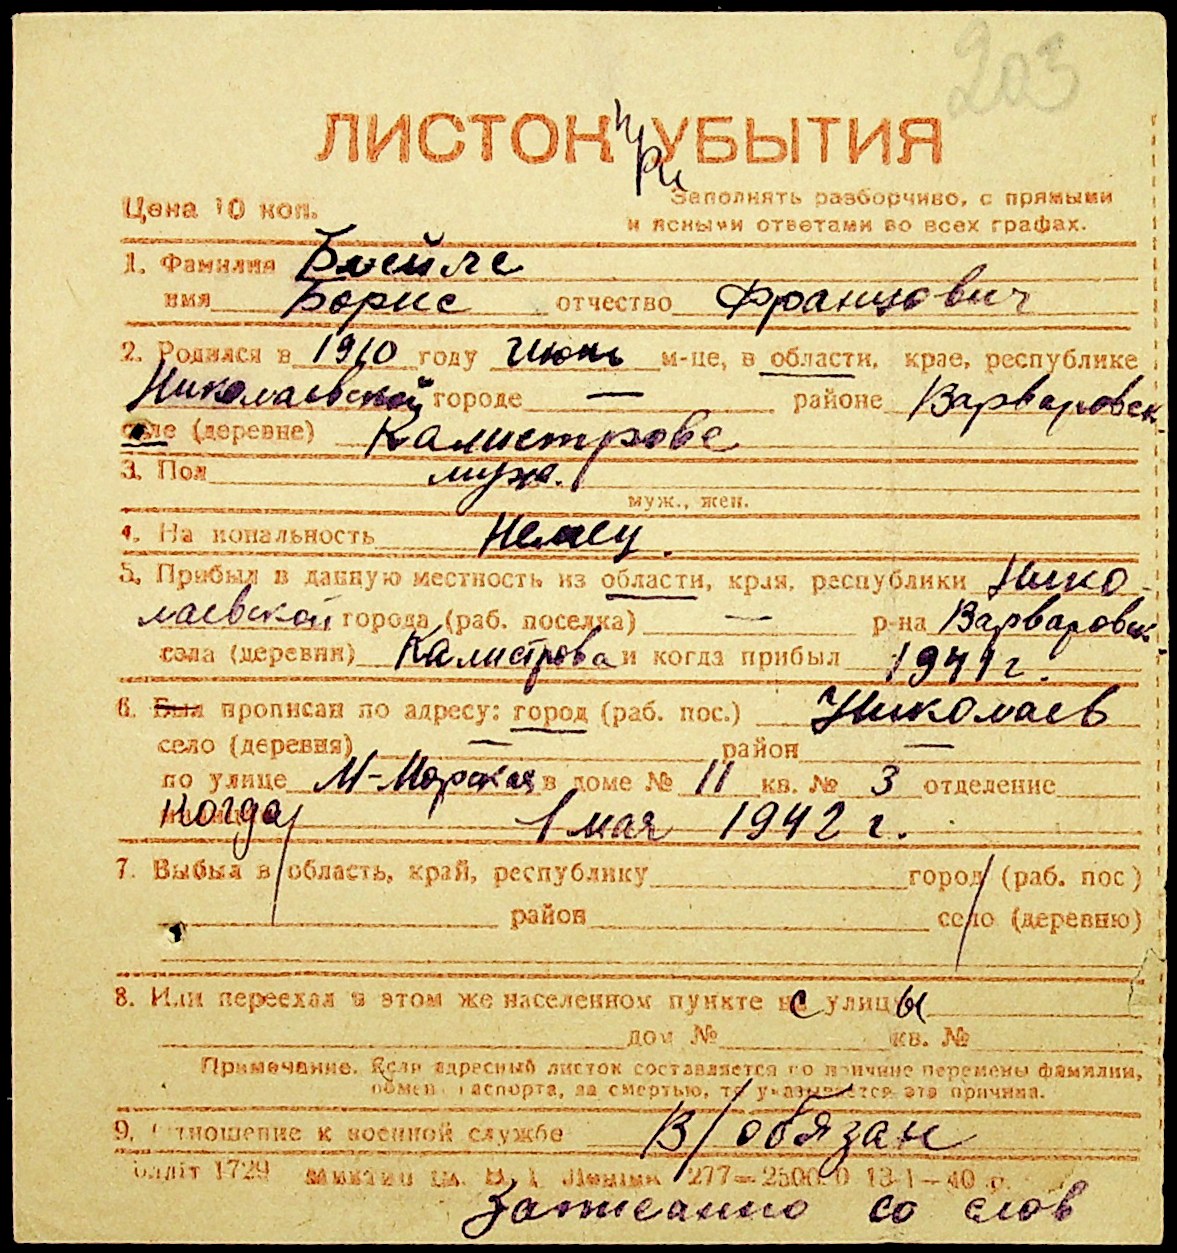 203
ЛИСТОК при УБЫТИЯ
Цена 10 коп.
Заполнять разборчиво, с прямыми
и ясными ответами во всех графах.
1. Фамилия Блейле
имя Борис отчество Францович
2. Родился в 1910 году Июнь м-це, в области, крае, республике
Николаевской городе — районе Варваровск.
селе (деревне) Калистрове
3. Пол муж.
муж., жен.
4. На иональность Немец.
5. Прибыл в данную местность из области, края, республики Нико
лаевской города (раб. поселка) — р-на Варваровск.
села (деревни) Калистрова и когда прибыл 1941 г.
6. Был прописан по адресу: город (раб. пос.) Николаев
село (деревня) — район —
по улице М-Морская в доме № 11 кв. № 3 отделение
когда 1 мая 1942 г.
7. Выбыл в область, край, республику город (раб. пос)
район село (деревню)
8. Или переехал в этом же населенном пункте с улицы
дом № кв. №
Примечание. Если адресный листок составляется по причине перемены фамилии,
обмен паспорта, за смертью, то указывается эта причина.
9. Отношение к военной службе В/обязан
1729 277—25000 13-1—40 р.
Записанно со слов